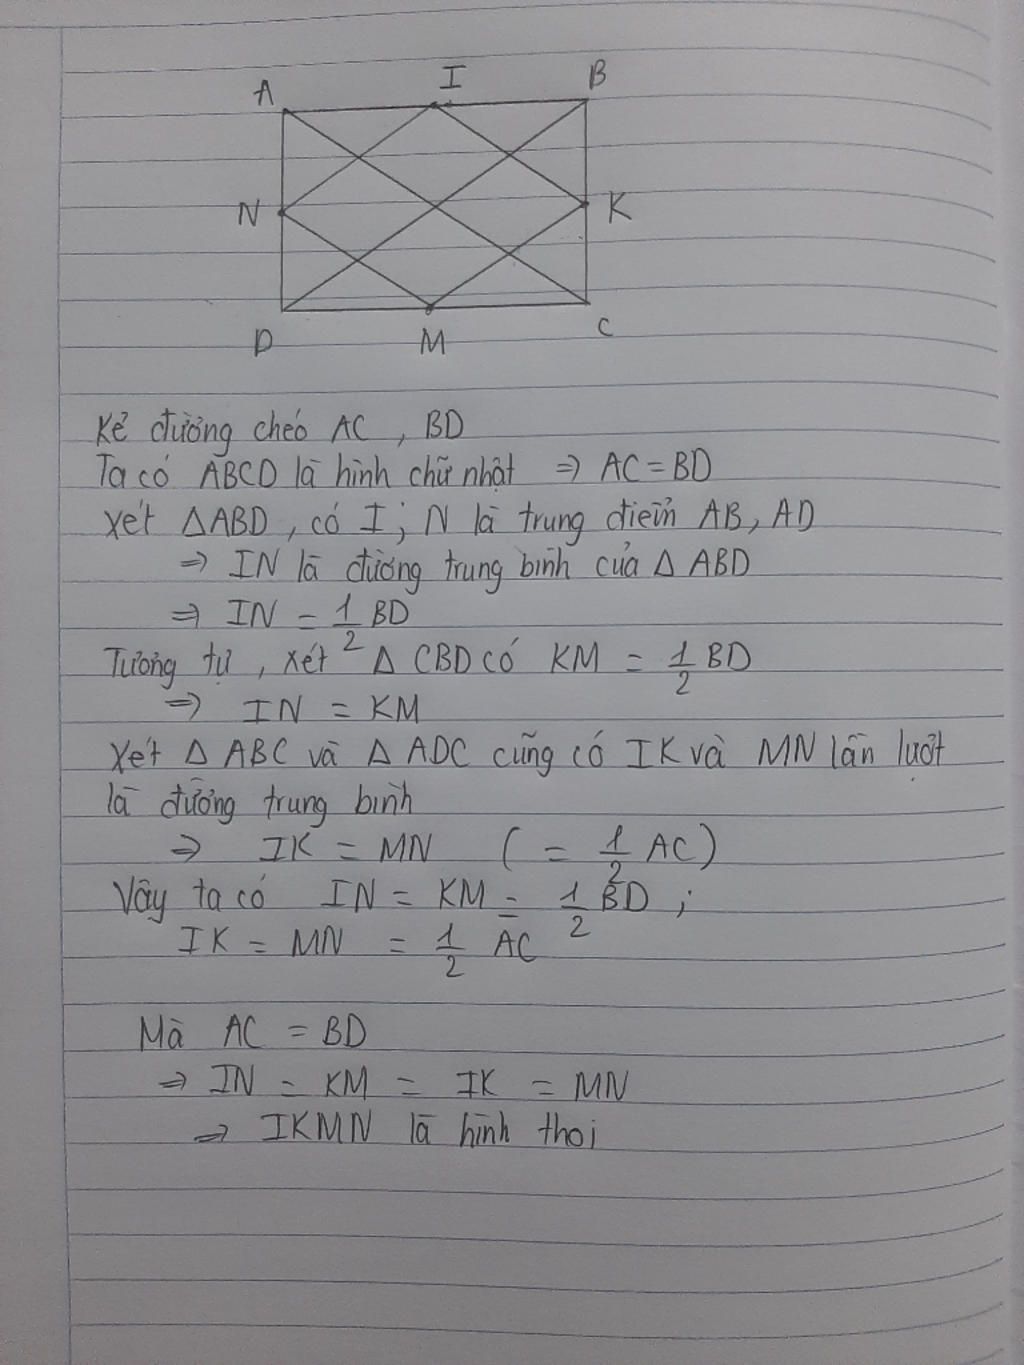 A I B
N K
D M C
Kẻ đường chéo AC, BD
Ta có ABCD là hình chữ nhật => AC = BD
Xét ΔABD, có I; N là trung điểm AB, AD
=> IN là đường trung bình của Δ ABD
=> IN = 1/2 BD
Tương tự, xét Δ CBD có KM = 1/2 BD
=> IN = KM
Xét Δ ABC và Δ ADC cũng có IK và MN lần lượt
là đường trung bình
=> IK = MN ( = 1/2 AC)
Vậy ta có IN = KM = 1/2 BD ;
IK = MN = 1/2 AC
Mà AC = BD
=> IN = KM = IK = MN
=> IKMN là hình thoi